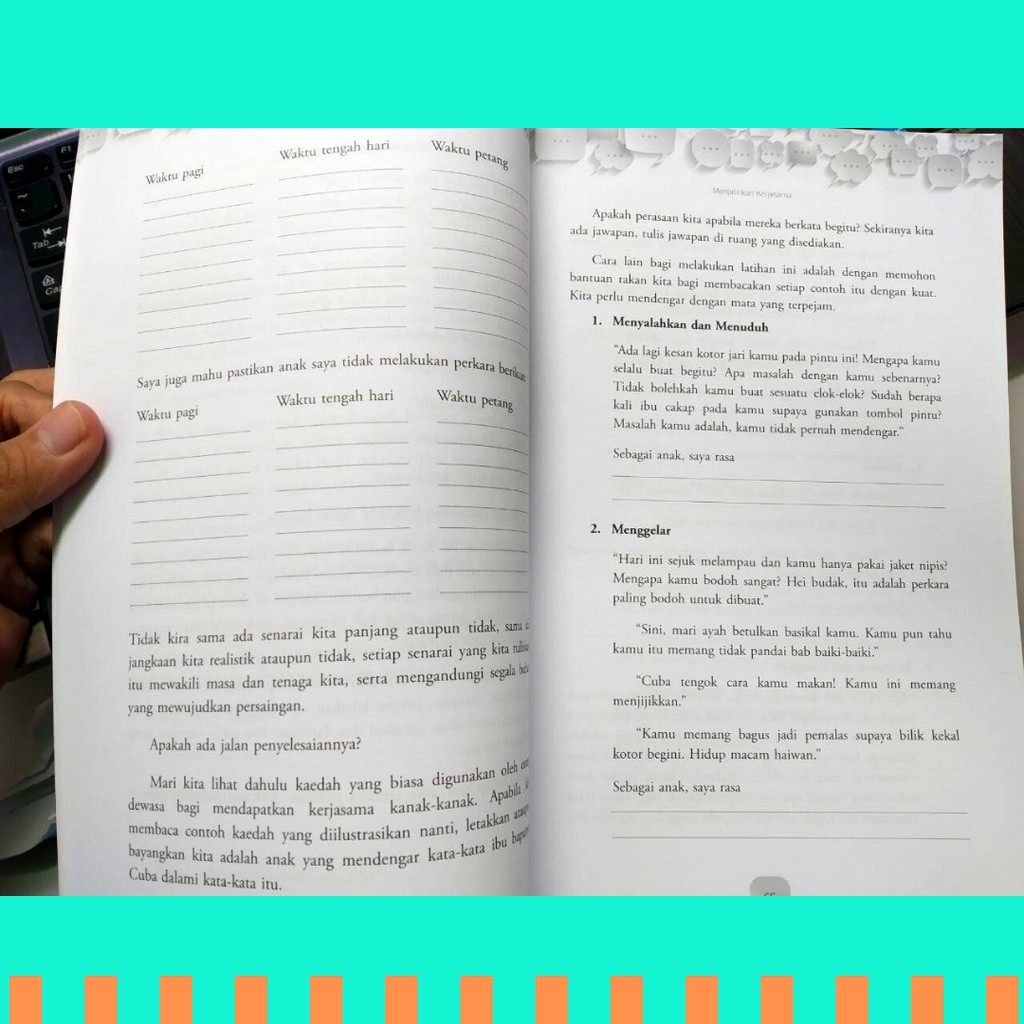 Esc
F1
Tab
Waktu pagi
Waktu tengah hari
Waktu petang
Saya juga mahu pastikan anak saya tidak melakukan perkara
Waktu pagi
Waktu tengah hari
Waktu petang
Tidak kira sama ada senarai kita panjang ataupun tidak, sama
jangkaan kita realistik ataupun tidak, setiap senarai yang kita
itu mewakili masa dan tenaga kita, serta mengandungi segala
yang mewujudkan persaingan.
Apakah ada jalan penyelesaiannya?
Mari kita lihat dahulu kaedah yang biasa digunakan oleh
dewasa bagi mendapatkan kerjasama kanak-kanak. Apabila
membaca contoh kaedah yang diilustrasikan nanti, letakkan
bayangkan kita adalah anak yang mendengar kata-kata ibu
Cuba dalami kata-kata itu.
Menjalinkan Kerjasama
Apakah perasaan kita apabila mereka berkata begitu? Sekiranya kita
ada jawapan, tulis jawapan di ruang yang disediakan.
Cara lain bagi melakukan latihan ini adalah dengan memohon
bantuan rakan kita bagi membacakan setiap contoh itu dengan kuat.
Kita perlu mendengar dengan mata yang terpejam.
1. Menyalahkan dan Menuduh
“Ada lagi kesan kotor jari kamu pada pintu ini! Mengapa kamu
selalu buat begitu? Apa masalah dengan kamu sebenarnya?
Tidak bolehkah kamu buat sesuatu elok-elok? Sudah berapa
kali ibu cakap pada kamu supaya gunakan tombol pintu?
Masalah kamu adalah, kamu tidak pernah mendengar.”
Sebagai anak, saya rasa
2. Menggelar
“Hari ini sejuk melampau dan kamu hanya pakai jaket nipis?
Mengapa kamu bodoh sangat? Hei budak, itu adalah perkara
paling bodoh untuk dibuat.”
“Sini, mari ayah betulkan basikal kamu. Kamu pun tahu
kamu itu memang tidak pandai bab baiki-baiki.”
“Cuba tengok cara kamu makan! Kamu ini memang
menjijikkan.”
“Kamu memang bagus jadi pemalas supaya bilik kekal
kotor begini. Hidup macam haiwan.”
Sebagai anak, saya rasa